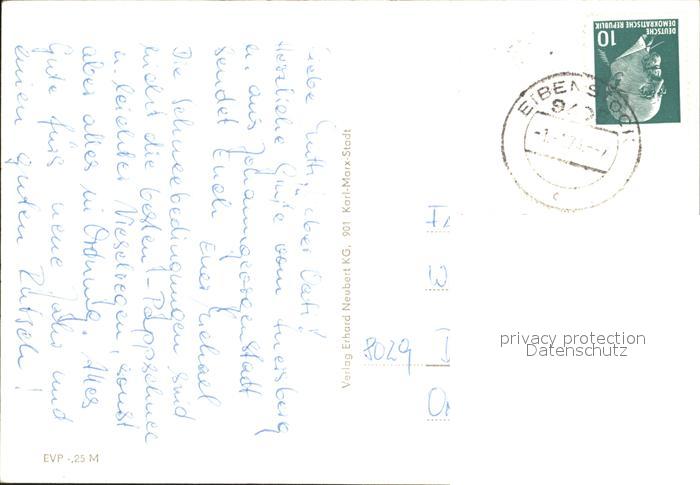 Liebe Mutti, lieber Vati!
Herzliche Grüße vom Auersberg
u. aus Johanngeorgenstadt
sendet Euch Euer Michael
Die Schneebedingungen sind
nicht die besten! - Pappschnee
u. leichter Nieselregen, sonst
aber alles in Ordnung. Alles
Gute fürs neue Jahr und
einen guten Rutsch!
Verlag Erhard Neubert KG, 901 Karl-Marx-Stadt
EVP -,25 M
8029
DEUTSCHE
DEMOKRATISCHE REPUBLIK
10
EIBENSTOCK
c
privacy protection
Datenschutz